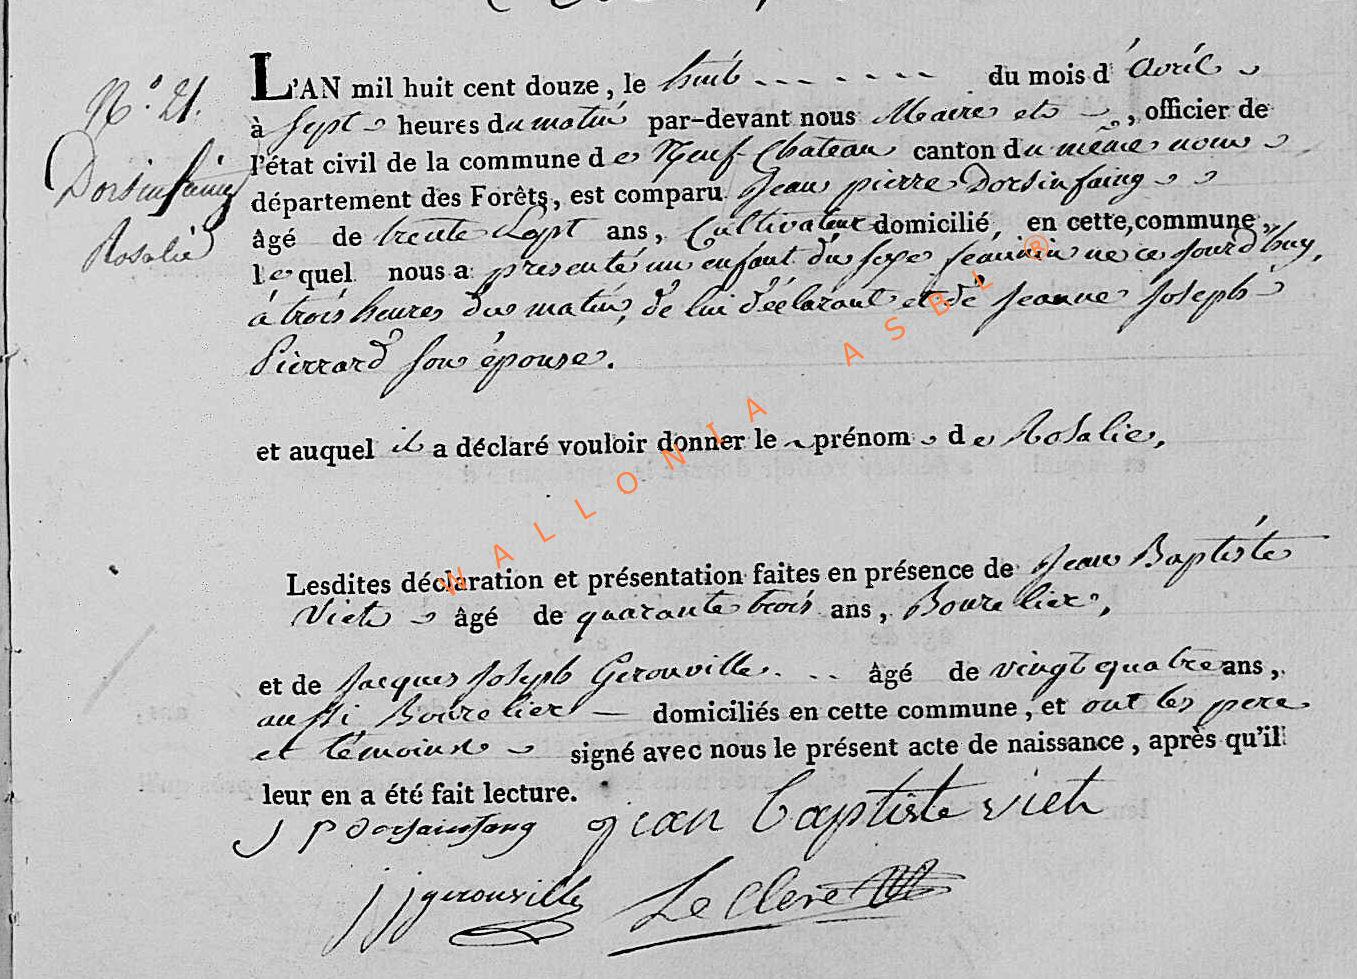 N.° 21.
Dorsinfaing
Rosalie
L'AN mil huit cent douze, le huit - - - - - - - du mois d'avril
à sept heures du matin par-devant nous Maire et , officier de
l'état civil de la commune de Neuf-Chateau canton du même nom
département des Forêts, est comparu Jean pierre Dorsinfaing
âgé de trente sept ans, Cultivateur domicilié, en cette commune,
lequel nous a presenté un enfant du sexe feminin né ce jourd'huy,
à trois heures du matin, de lui déclarant et de Jeanne Joseph
Pierrard son épouse.
et auquel il a déclaré vouloir donner le prénom de Rosalie,
Lesdites déclaration et présentation faites en présence de Jean Baptiste
Viet âgé de quarante trois ans, Bourelier,
et de Jacques Joseph Gerouville. - - âgé de vingt quatre ans,
aussi Bourelier — domiciliés en cette commune, et ont les pere
et témoins signé avec nous le présent acte de naissance, après qu'il
leur en a été fait lecture.
J P dorsainfang jean baptiste viet
j j gerouville Le Clere
WALLONIA ASBL ®